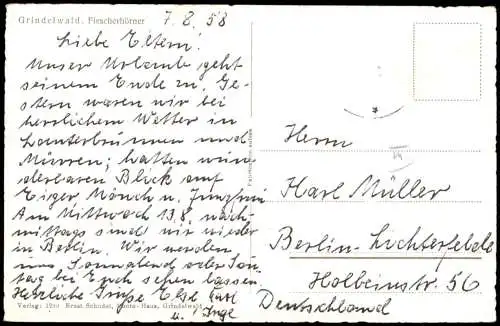 Grindelwald. Fiescherhörner
7.8.58
Liebe Eltern!
Unser Urlaub geht
seinem Ende zu. Ge-
stern waren wir bei
herrlichem Wetter in
Lauterbrunnen und
Mürren; hatten wun-
derbaren Blick auf
Eiger Mönch u. Jungfrau
Am Mittwoch 13.8. nach-
mittags sind wir wieder
in Berlin. Wir werden
uns Sonnabend oder Son-
tag bei Euch sehen lassen.
Herzliche Grüße Else Karl
u. Inge
Verlag: Ernst Schudel, Grindelwald
Herrn
Karl Müller
Berlin-Lichterfelde
Holbeinstr. 56
Deutschland